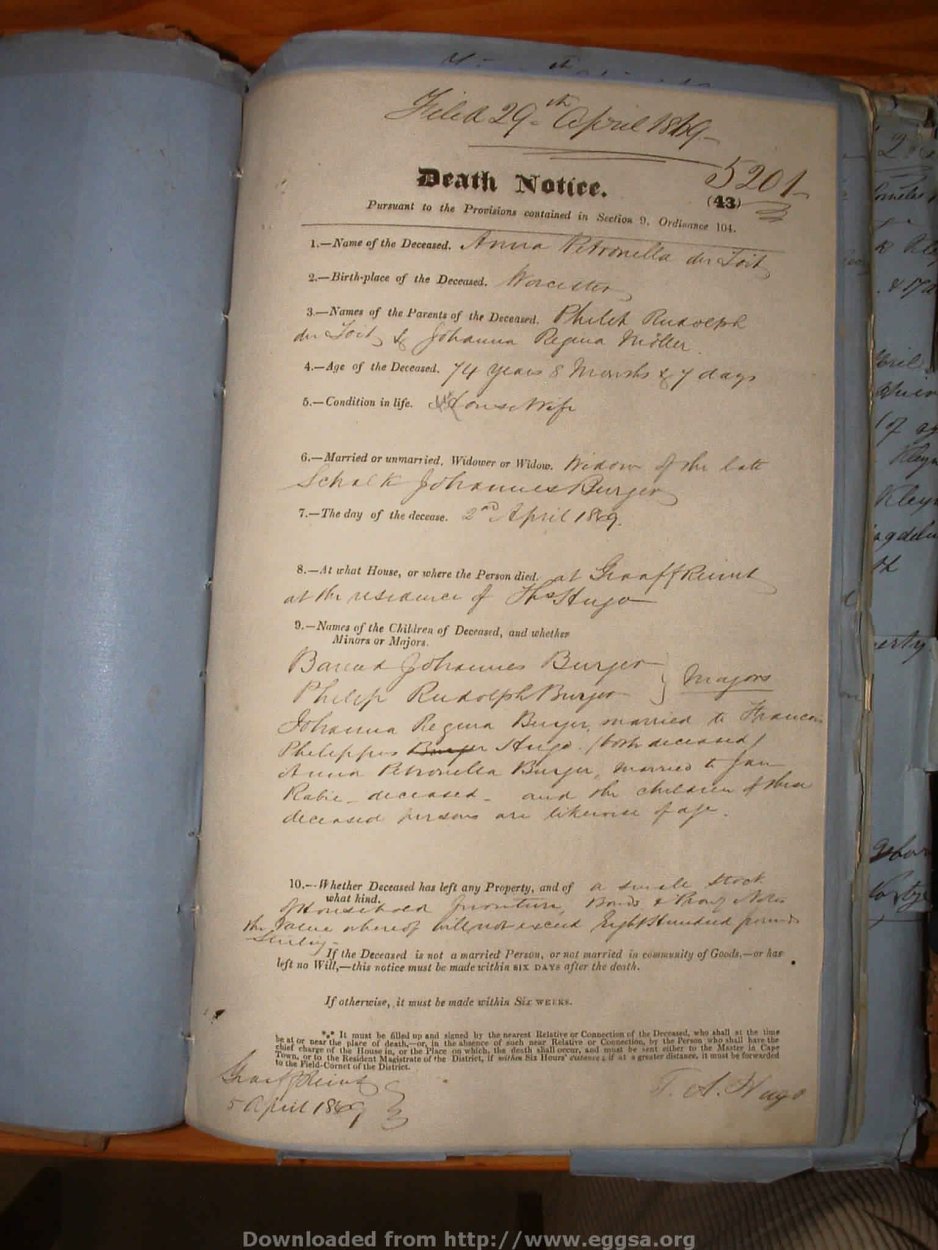 Filed 29th April 1869
Death Notice.
5201
(43)
Pursuant to the Provisions contained in Section 9, Ordinance 104.
1.—Name of the Deceased. Anna Petronella du Toit
2.—Birth-place of the Deceased. Worcester
3.—Names of the Parents of the Deceased. Philip Rudolph
du Toit & Johanna Regina Möller.
4.—Age of the Deceased. 74 years 8 Months & 7 days
5.—Condition in life. House Wife
6.—Married or unmarried, Widower or Widow. Widow of the late
Schalk Johannes Burger
7.—The day of the decease. 2nd April 1869.
8.—At what House, or where the Person died. at Graaff Reinet
at the residence of Ths Hugo
9.—Names of the Children of Deceased, and whether
Minors or Majors.
Barend Johannes Burger
Philip Rudolph Burger } Majors
Johanna Regina Burger, married to Francois
Philippus Burger Hugo (both deceased)
Anna Petronella Burger, Married to Jan
Rabie - deceased - and the children of these
deceased persons are likewise of age.
10.—Whether Deceased has left any Property, and of a small Stock
what kind.
of Household furniture, Bonds & Promy Notes
the Value whereof will not exceed Eight Hundred pounds
Sterling -
If the Deceased is not a married Person, or not married in community of Goods,—or has
left no Will,—this notice must be made within SIX DAYS after the death.
If otherwise, it must be made within Six WEEKS.
*** It must be filled up and signed by the nearest Relative or Connection of the Deceased, who shall at the time
be at or near the place of death,—or, in the absence of such near Relative or Connection, by the Person who shall have the
chief charge of the House in, or the Place on which, the death shall occur, and must be sent either to the Master in Cape
Town, or to the Resident Magistrate of the District, if within Six Hours' distance; if at a greater distance, it must be forwarded
to the Field-Cornet of the District.
Graaff Reinet
5 April 1869
T. A. Hugo
Downloaded from http://www.eggsa.org